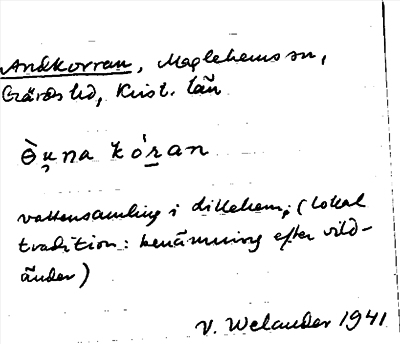 Andkorran, Maglehems sn,
Gärds hd, Krist. län
ɵ̀ṇna kóra̱n
vattensamling i dillehem; (lokal
tradition: benämning efter vild-
änder)
V. Welander 1941